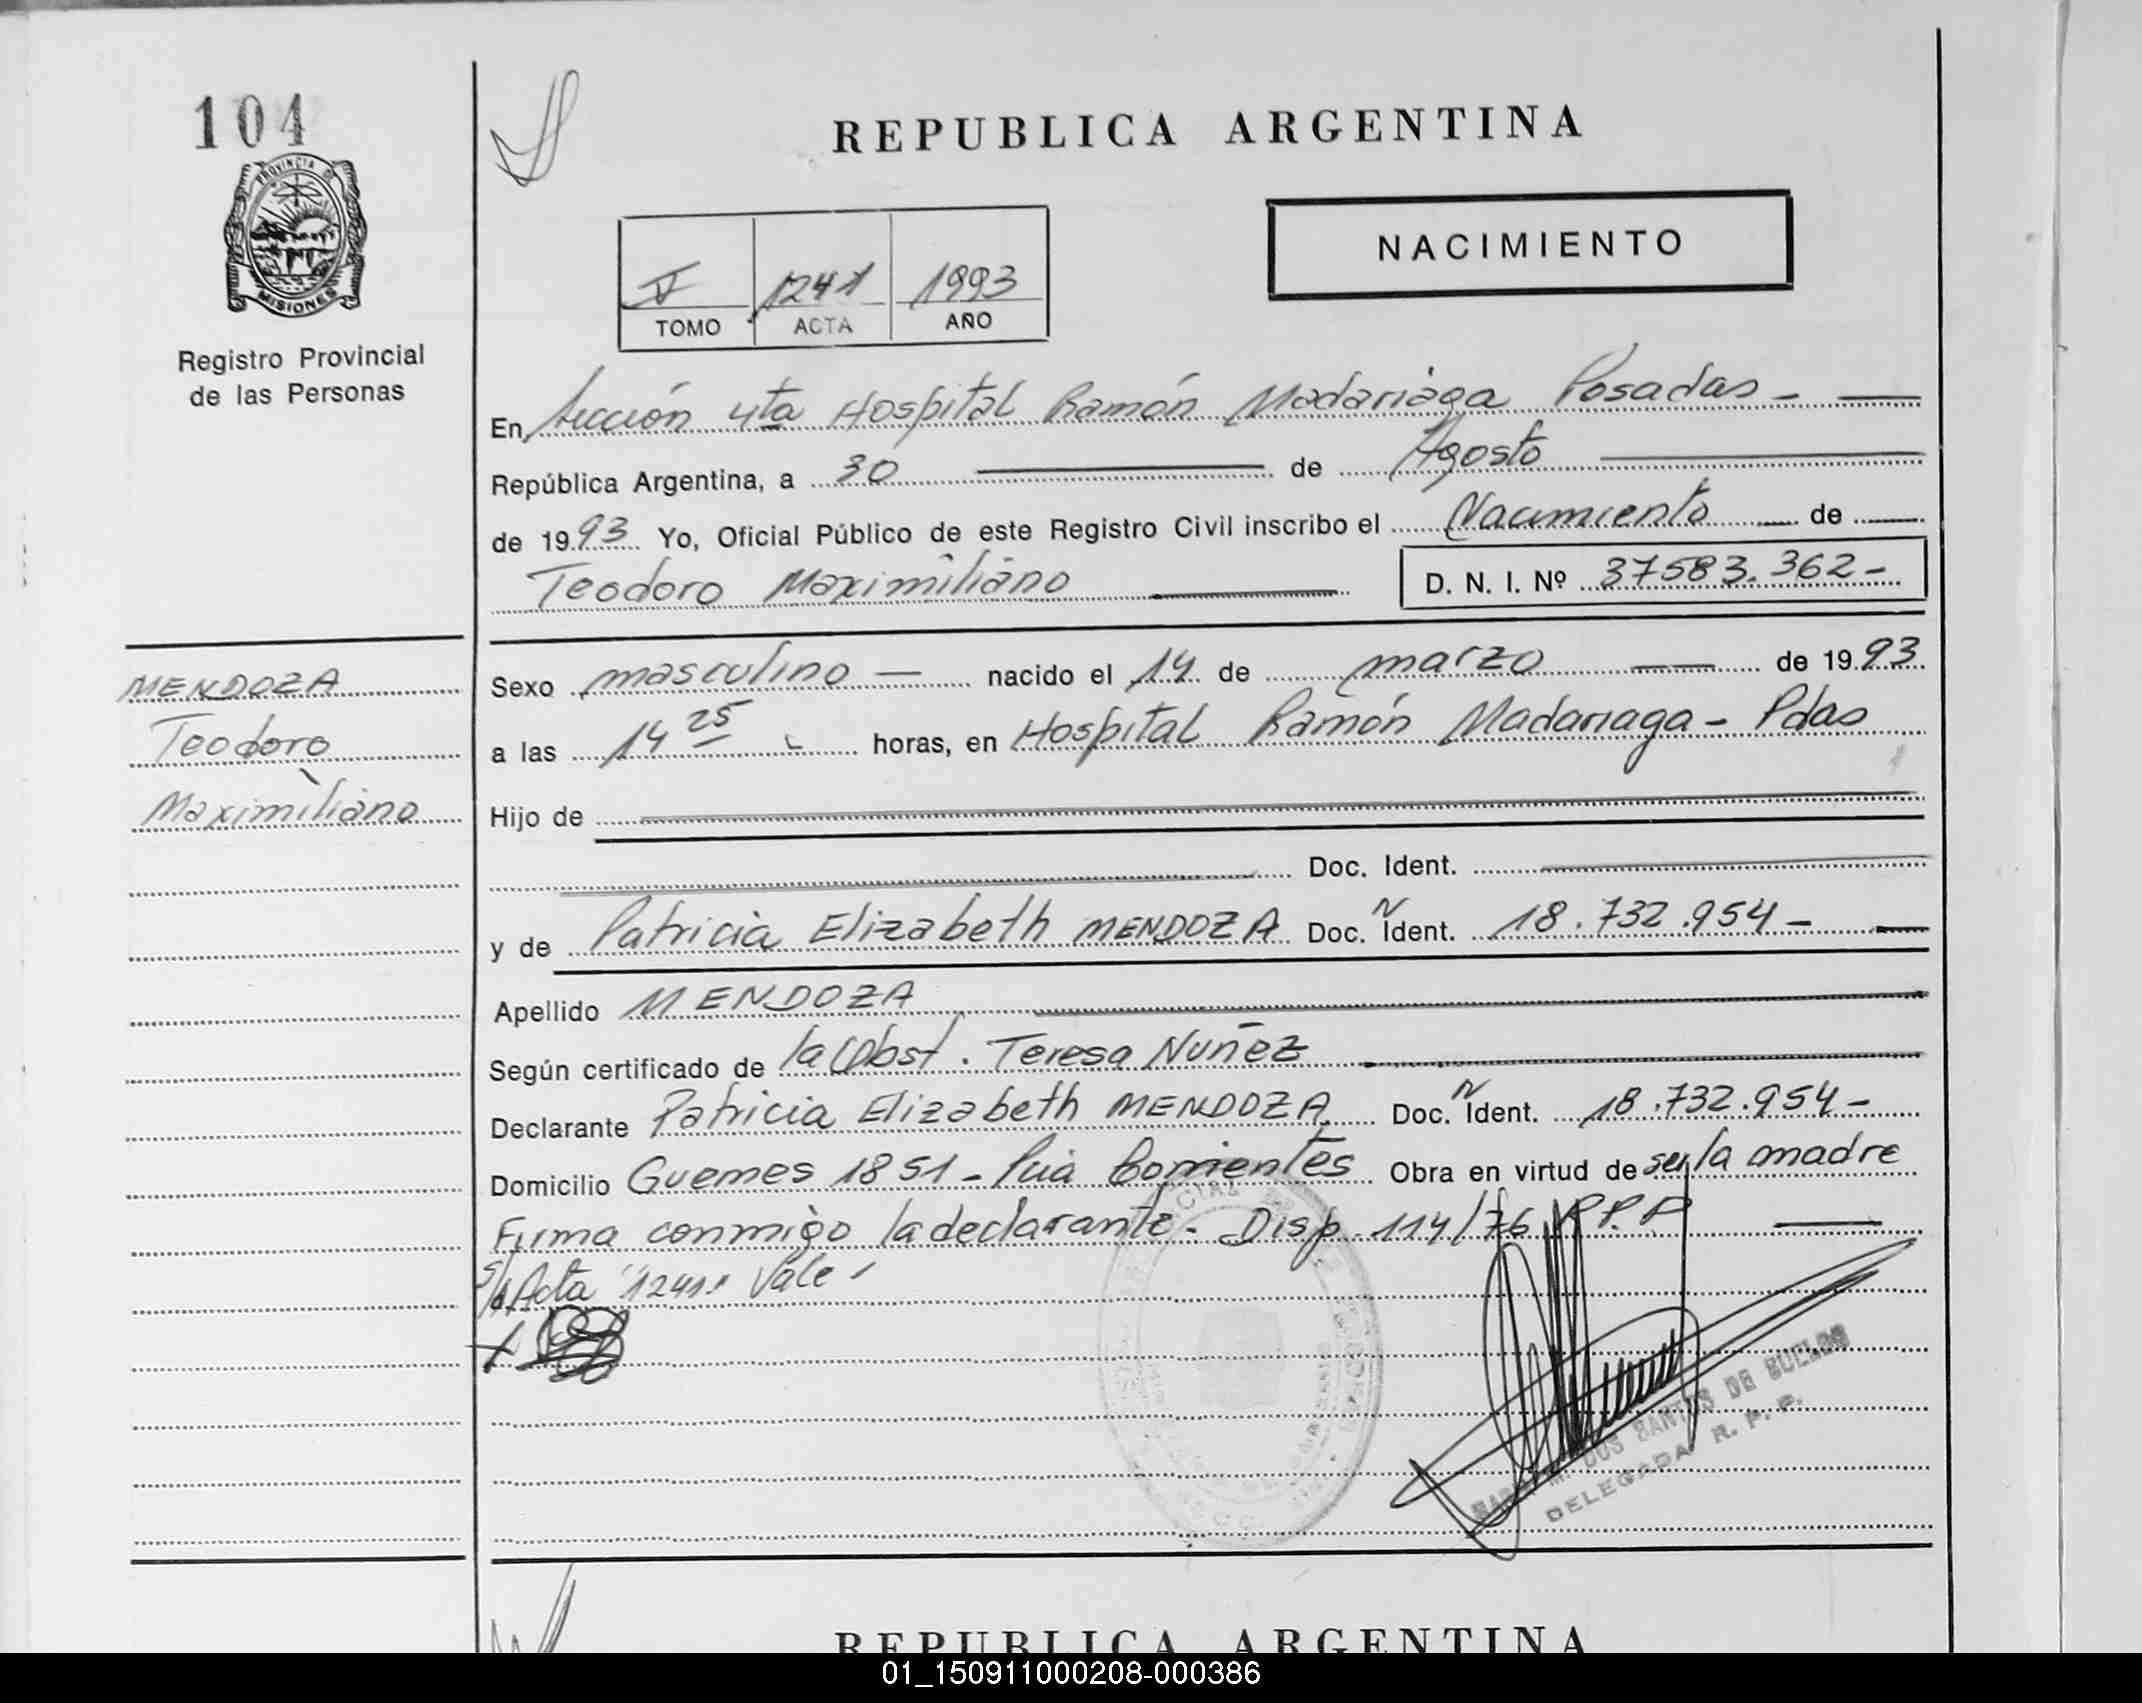 104
PROVINCIA DE
MISIONES
Registro Provincial
de las Personas
REPUBLICA ARGENTINA
NACIMIENTO
V 1241 1993
TOMO ACTA AÑO
En Sección 4ta Hospital Ramón Madariaga Posadas -
República Argentina, a 30 de Agosto
de 1993 Yo, Oficial Público de este Registro Civil inscribo el Nacimiento de
Teodoro Maximiliano D. N. I. Nº 37583.362-
MENDOZA
Teodoro
Maximiliano
Sexo masculino nacido el 14 de marzo de 1993
a las 14 25 horas, en Hospital Ramón Madariaga - Pdas
Hijo de
Doc. Ident.
y de Patricia Elizabeth MENDOZA Doc. N Ident. 18.732.954-
Apellido MENDOZA
Según certificado de la Obst. Teresa Nuñez
Declarante Patricia Elizabeth MENDOZA Doc. N Ident. 18.732.954-
Domicilio Guemes 1851 - Pcia Corrientes Obra en virtud de ser la madre
Firma conmigo la declarante. Disp. 114/76 R.P.P
Acta "1241" Vale
DOS SANTOS DE BUELOS
DELEGADA R. P. P.
REPUBLICA ARGENTINA
01_150911000208-000386